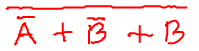 \overline{\overline{A} + \overline{B} + B}